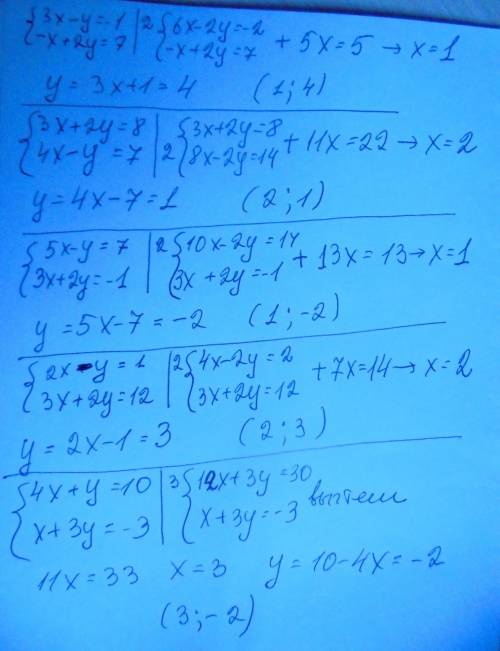 {3x-y=-1 |2 {6x-2y=-2
{-x+2y=7 | {-x+2y=7 + 5x=5 → x=1
y=3x+1=4 (1;4)
{3x+2y=8 | {3x+2y=8
{4x-y=7 |2 {8x-2y=14 + 11x=22 → x=2
y=4x-7=1 (2;1)
{5x-y=7 |2 {10x-2y=14
{3x+2y=-1 | {3x+2y=-1 + 13x=13 → x=1
y=5x-7=-2 (1;-2)
{2x-y=1 |2 {4x-2y=2
{3x+2y=12 | {3x+2y=12 +7x=14 → x=2
y=2x-1=3 (2;3)
{4x+y=10 |3 {12x+3y=30
{x+3y=-3 | {x+3y=-3 вычтем
11x=33 x=3 y=10-4x=-2
(3;-2)